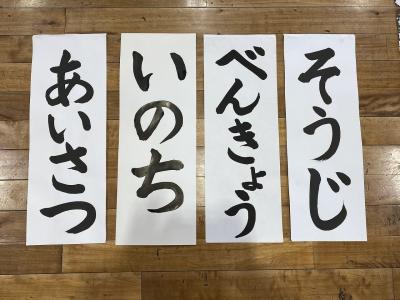 そうじ
べんきょう
いのち
あいさつ